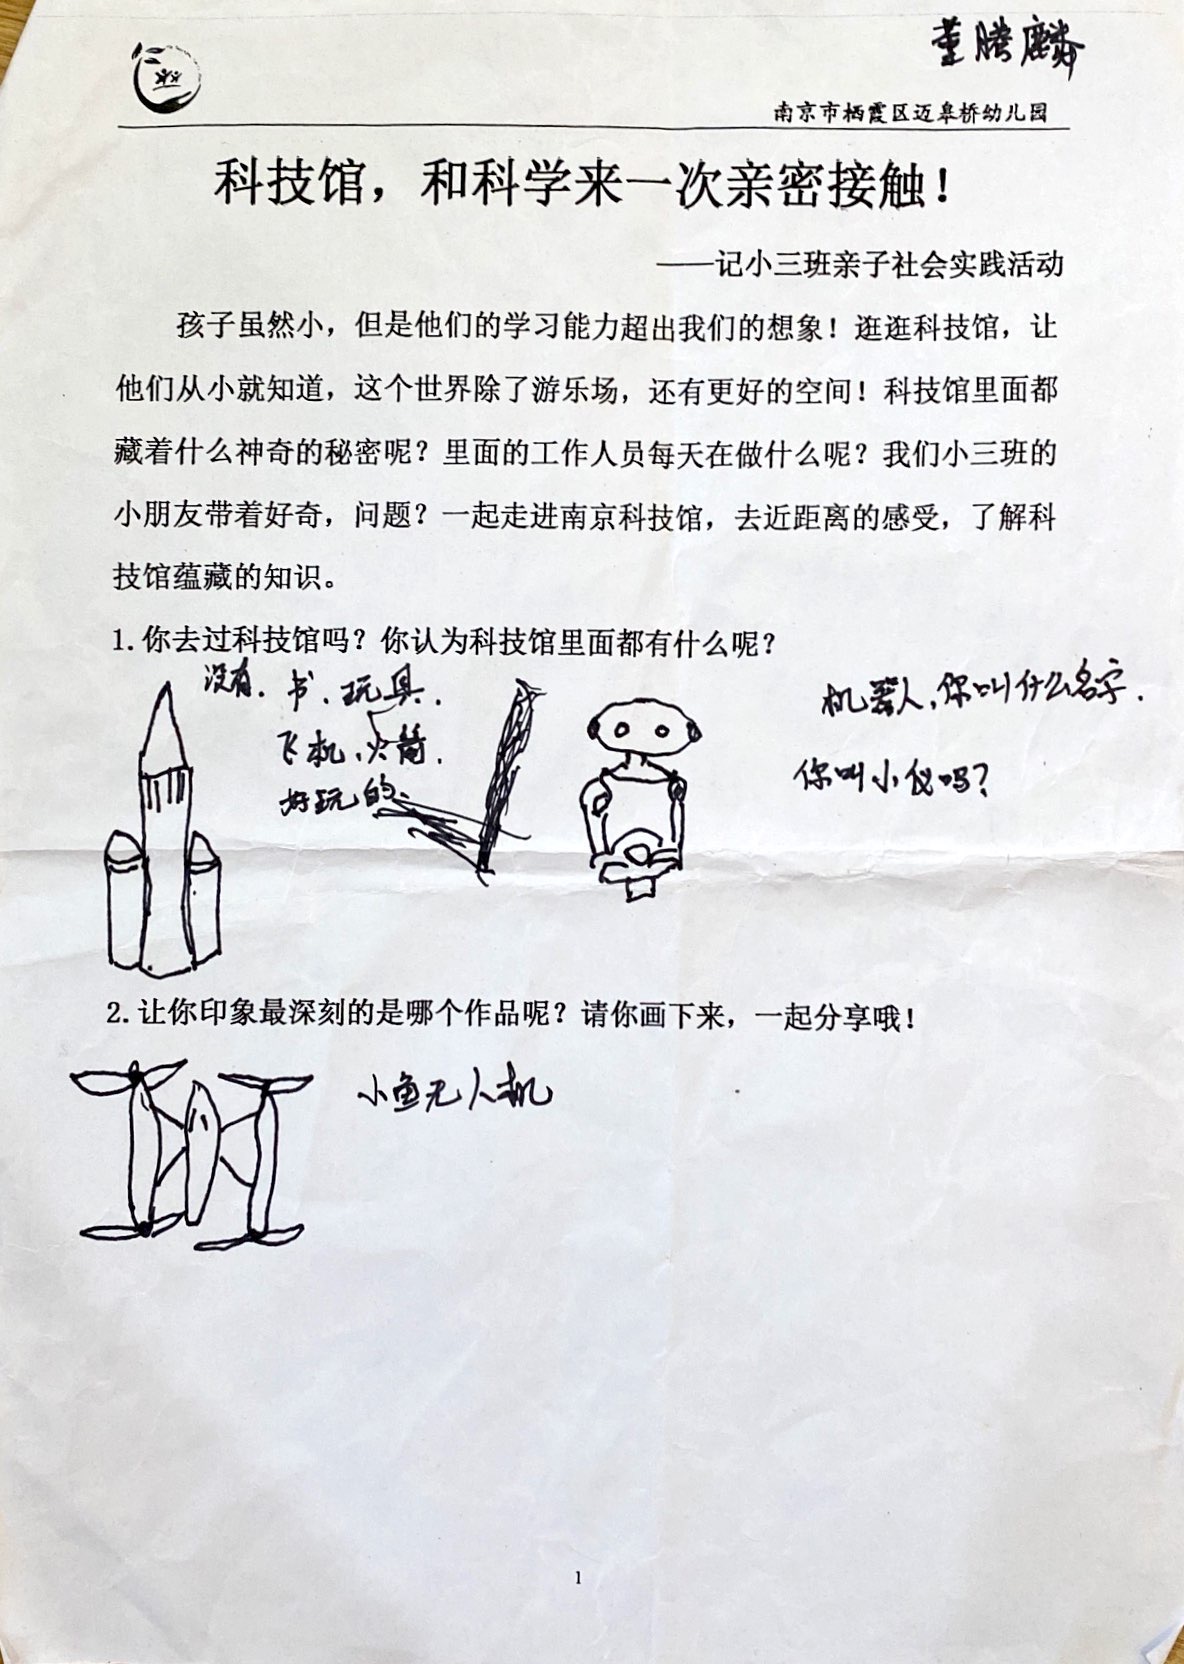 董腾麟
南京市栖霞区迈皋桥幼儿园
科技馆，和科学来一次亲密接触！
——记小三班亲子社会实践活动
孩子虽然小，但是他们的学习能力超出我们的想象！逛逛科技馆，让
他们从小就知道，这个世界除了游乐场，还有更好的空间！科技馆里面都
藏着什么神奇的秘密呢？里面的工作人员每天在做什么呢？我们小三班的
小朋友带着好奇，问题？一起走进南京科技馆，去近距离的感受，了解科
技馆蕴藏的知识。
1.你去过科技馆吗？你认为科技馆里面都有什么呢？
没有．书、玩具．
飞机、火箭．
好玩的、
机器人，你叫什么名字．
你叫小 吗？
2.让你印象最深刻的是哪个作品呢？请你画下来，一起分享哦！
小鱼无人机
1